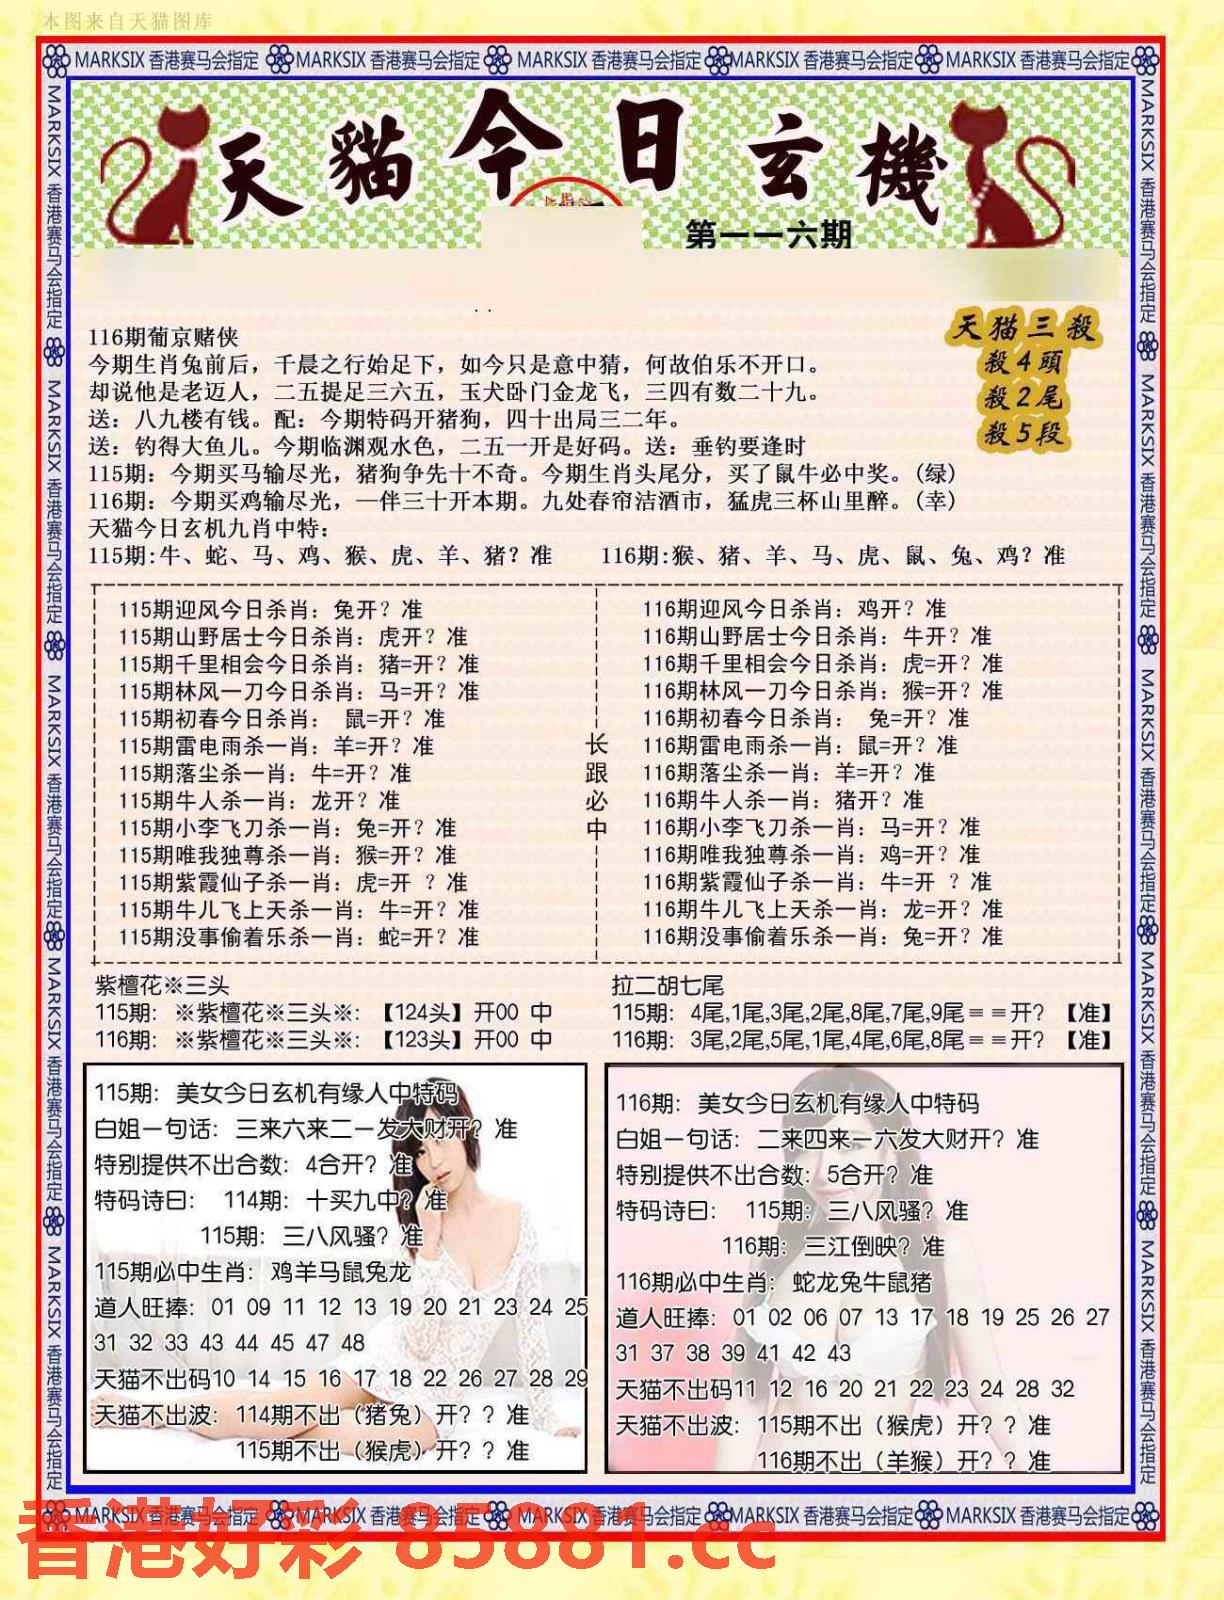 本图来自天猫图库
MARKSIX 香港赛马会指定 MARKSIX 香港赛马会指定 MARKSIX 香港赛马会指定 MARKSIX 香港赛马会指定 MARKSIX 香港赛马会指定
天貓今日玄機
第一一六期
天猫三殺
殺4頭
殺2尾
殺5段
116期葡京赌侠
今期生肖兔前后，千晨之行始足下，如今只是意中猜，何故伯乐不开口。
却说他是老迈人，二五提足三六五，玉犬卧门金龙飞，三四有数二十九。
送：八九楼有钱。配：今期特码开猪狗，四十出局三二年。
送：钓得大鱼儿。今期临渊观水色，二五一开是好码。送：垂钓要逢时
115期：今期买马输尽光，猪狗争先十不奇。今期生肖头尾分，买了鼠牛必中奖。(绿)
116期：今期买鸡输尽光，一伴三十开本期。九处春帘洁酒市，猛虎三杯山里醉。(幸)
天猫今日玄机九肖中特：
115期:牛、蛇、马、鸡、猴、虎、羊、猪？准 116期:猴、猪、羊、马、虎、鼠、兔、鸡？准
115期迎风今日杀肖：兔开？准
115期山野居士今日杀肖：虎开？准
115期千里相会今日杀肖：猪=开？准
115期林风一刀今日杀肖：马=开？准
115期初春今日杀肖： 鼠=开？准
115期雷电雨杀一肖：羊=开？准
115期落尘杀一肖：牛=开？准
115期牛人杀一肖：龙开？准
115期小李飞刀杀一肖：兔=开？准
115期唯我独尊杀一肖：猴=开？准
115期紫霞仙子杀一肖：虎=开 ？准
115期牛儿飞上天杀一肖：牛=开？准
115期没事偷着乐杀一肖：蛇=开？准
长跟必中
116期迎风今日杀肖：鸡开？准
116期山野居士今日杀肖：牛开？准
116期千里相会今日杀肖：虎=开？准
116期林风一刀今日杀肖：猴=开？准
116期初春今日杀肖： 兔=开？准
116期雷电雨杀一肖：鼠=开？准
116期落尘杀一肖：羊=开？准
116期牛人杀一肖：猪开？准
116期小李飞刀杀一肖：马=开？准
116期唯我独尊杀一肖：鸡=开？准
116期紫霞仙子杀一肖：牛=开 ？准
116期牛儿飞上天杀一肖：龙=开？准
116期没事偷着乐杀一肖：兔=开？准
紫檀花※三头
115期：※紫檀花※三头※：【124头】开00 中
116期：※紫檀花※三头※：【123头】开00 中
拉二胡七尾
115期：4尾,1尾,3尾,2尾,8尾,7尾,9尾＝＝开？【准】
116期：3尾,2尾,5尾,1尾,4尾,6尾,8尾＝＝开？【准】
115期：美女今日玄机有缘人中特码
白姐一句话：三来六来二一发大财开？准
特别提供不出合数：4合开？准
特码诗曰： 114期：十买九中？准
115期：三八风骚？准
115期必中生肖：鸡羊马鼠兔龙
道人旺捧：01 09 11 12 13 19 20 21 23 24 25
31 32 33 43 44 45 47 48
天猫不出码10 14 15 16 17 18 22 26 27 28 29
天猫不出波：114期不出（猪兔）开？？准
115期不出（猴虎）开？？准
116期：美女今日玄机有缘人中特码
白姐一句话：二来四来一六发大财开？准
特别提供不出合数：5合开？准
特码诗曰： 115期：三八风骚？准
116期：三江倒映？准
116期必中生肖：蛇龙兔牛鼠猪
道人旺捧：01 02 06 07 13 17 18 19 25 26 27
31 37 38 39 41 42 43
天猫不出码11 12 16 20 21 22 23 24 28 32
天猫不出波：115期不出（猴虎）开？？准
116期不出（羊猴）开？？准
MARKSIX 香港赛马会指定 MARKSIX 香港赛马会指定 MARKSIX 香港赛马会指定 MARKSIX 香港赛马会指定 MARKSIX 香港赛马会指定
MARKSIX 香港赛马会指定 MARKSIX 香港赛马会指定 MARKSIX 香港赛马会指定 MARKSIX 香港赛马会指定 MARKSIX 香港赛马会指定
MARKSIX 香港赛马会指定 MARKSIX 香港赛马会指定 MARKSIX 香港赛马会指定 MARKSIX 香港赛马会指定 MARKSIX 香港赛马会指定
香港好彩 85881.cc